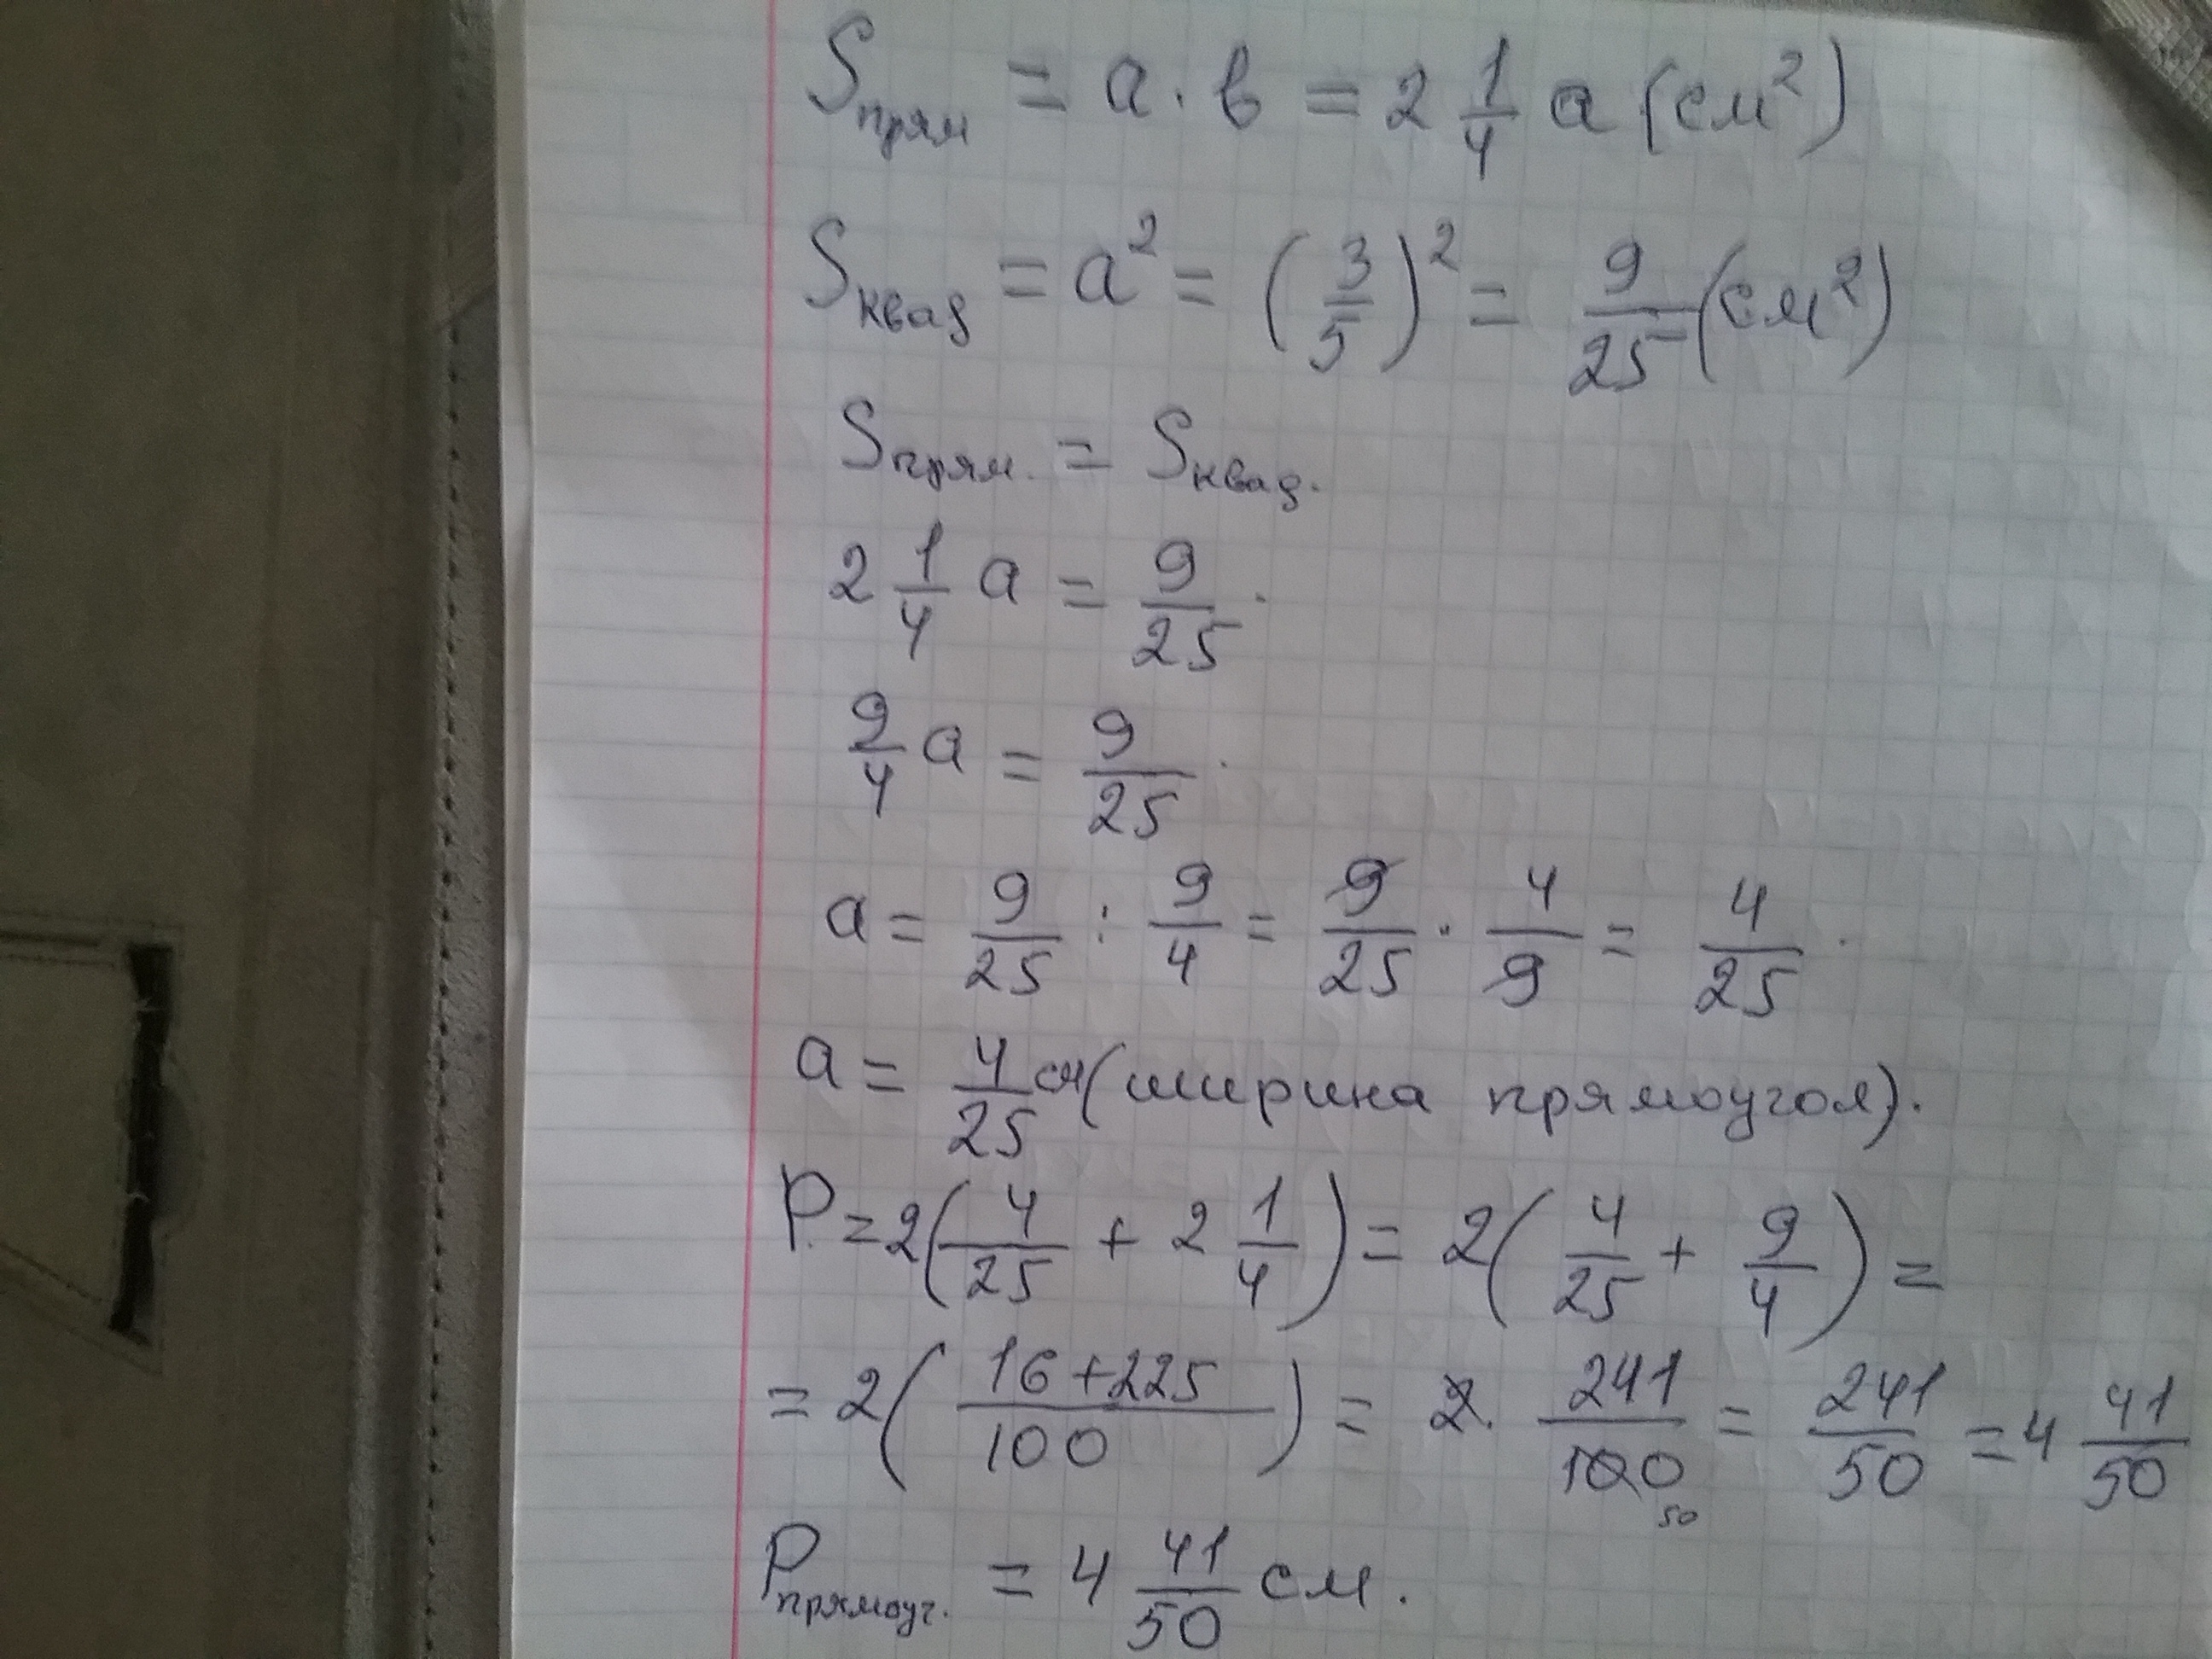 Sпрям = a · b = 2 1/4 a (см²)
Sквад = a² = (3/5)² = 9/25 (см²)
Sпрям. = Sквад.
2 1/4 a = 9/25.
9/4 a = 9/25.
a = 9/25 : 9/4 = 9/25 · 4/9 = 4/25.
a = 4/25 см (ширина прямоугол).
P. = 2(4/25 + 2 1/4) = 2(4/25 + 9/4) =
= 2(16+225/100) = 2 · 241/100 50 = 241/50 = 4 41/50
Pпрямоуг. = 4 41/50 см.